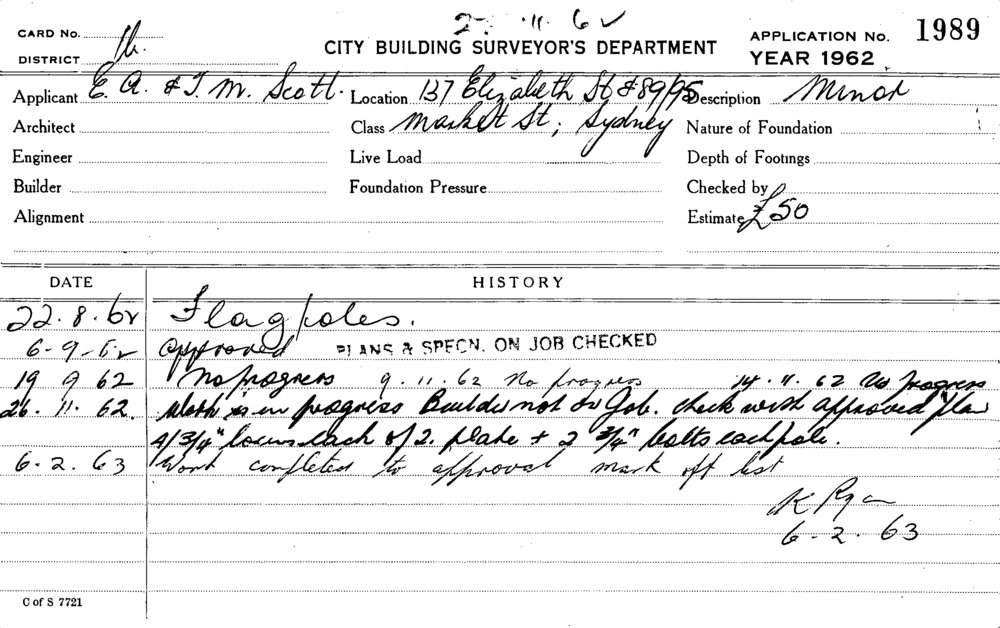 2. 11. 62
CARD No. CITY BUILDING SURVEYOR'S DEPARTMENT APPLICATION No. 1989
DISTRICT 1b. YEAR 1962
Applicant E. A. & T. M. Scott. Location 137 Elizabeth St & 89/95 Description Minor
Architect Class Market St; Sydney Nature of Foundation
Engineer Live Load Depth of Footings
Builder Foundation Pressure Checked by
Alignment Estimate £50
DATE HISTORY
22.8.62 Flagpoles.
6-9-62 Approved PLANS & SPECN. ON JOB CHECKED
19 9 62 No progress 9.11.62 No progress 14.11.62 No Progress
26.11.62. Work is in progress Builder not on Job. check with approved plan
4/3/4" each of 2. plate + 2 3/4" bolts each pole.
6.2.63 Work completed to approval mark off list
K Ryan
6-2.63
C of S 7721